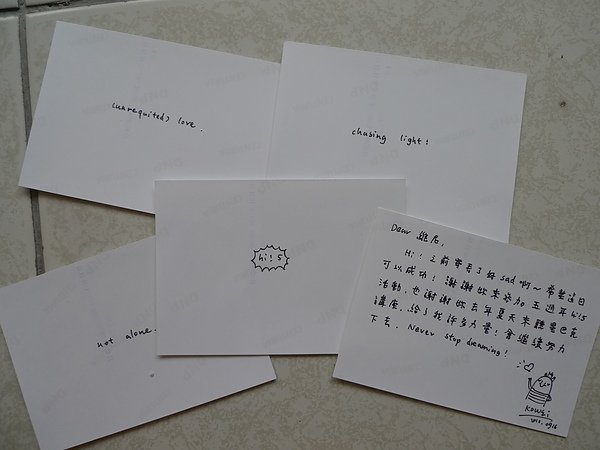 (unrequited) love.
chasing light!
hi! 5
not alone.
Dear
Hi! 之前寄丟了好sad啊~希望這回
可以成功! 謝謝妳來參加五週年hi!5
活動,也謝謝妳去年夏天來聽
講座,給了我許多力量!會繼續努力
下去. Never stop dreaming!